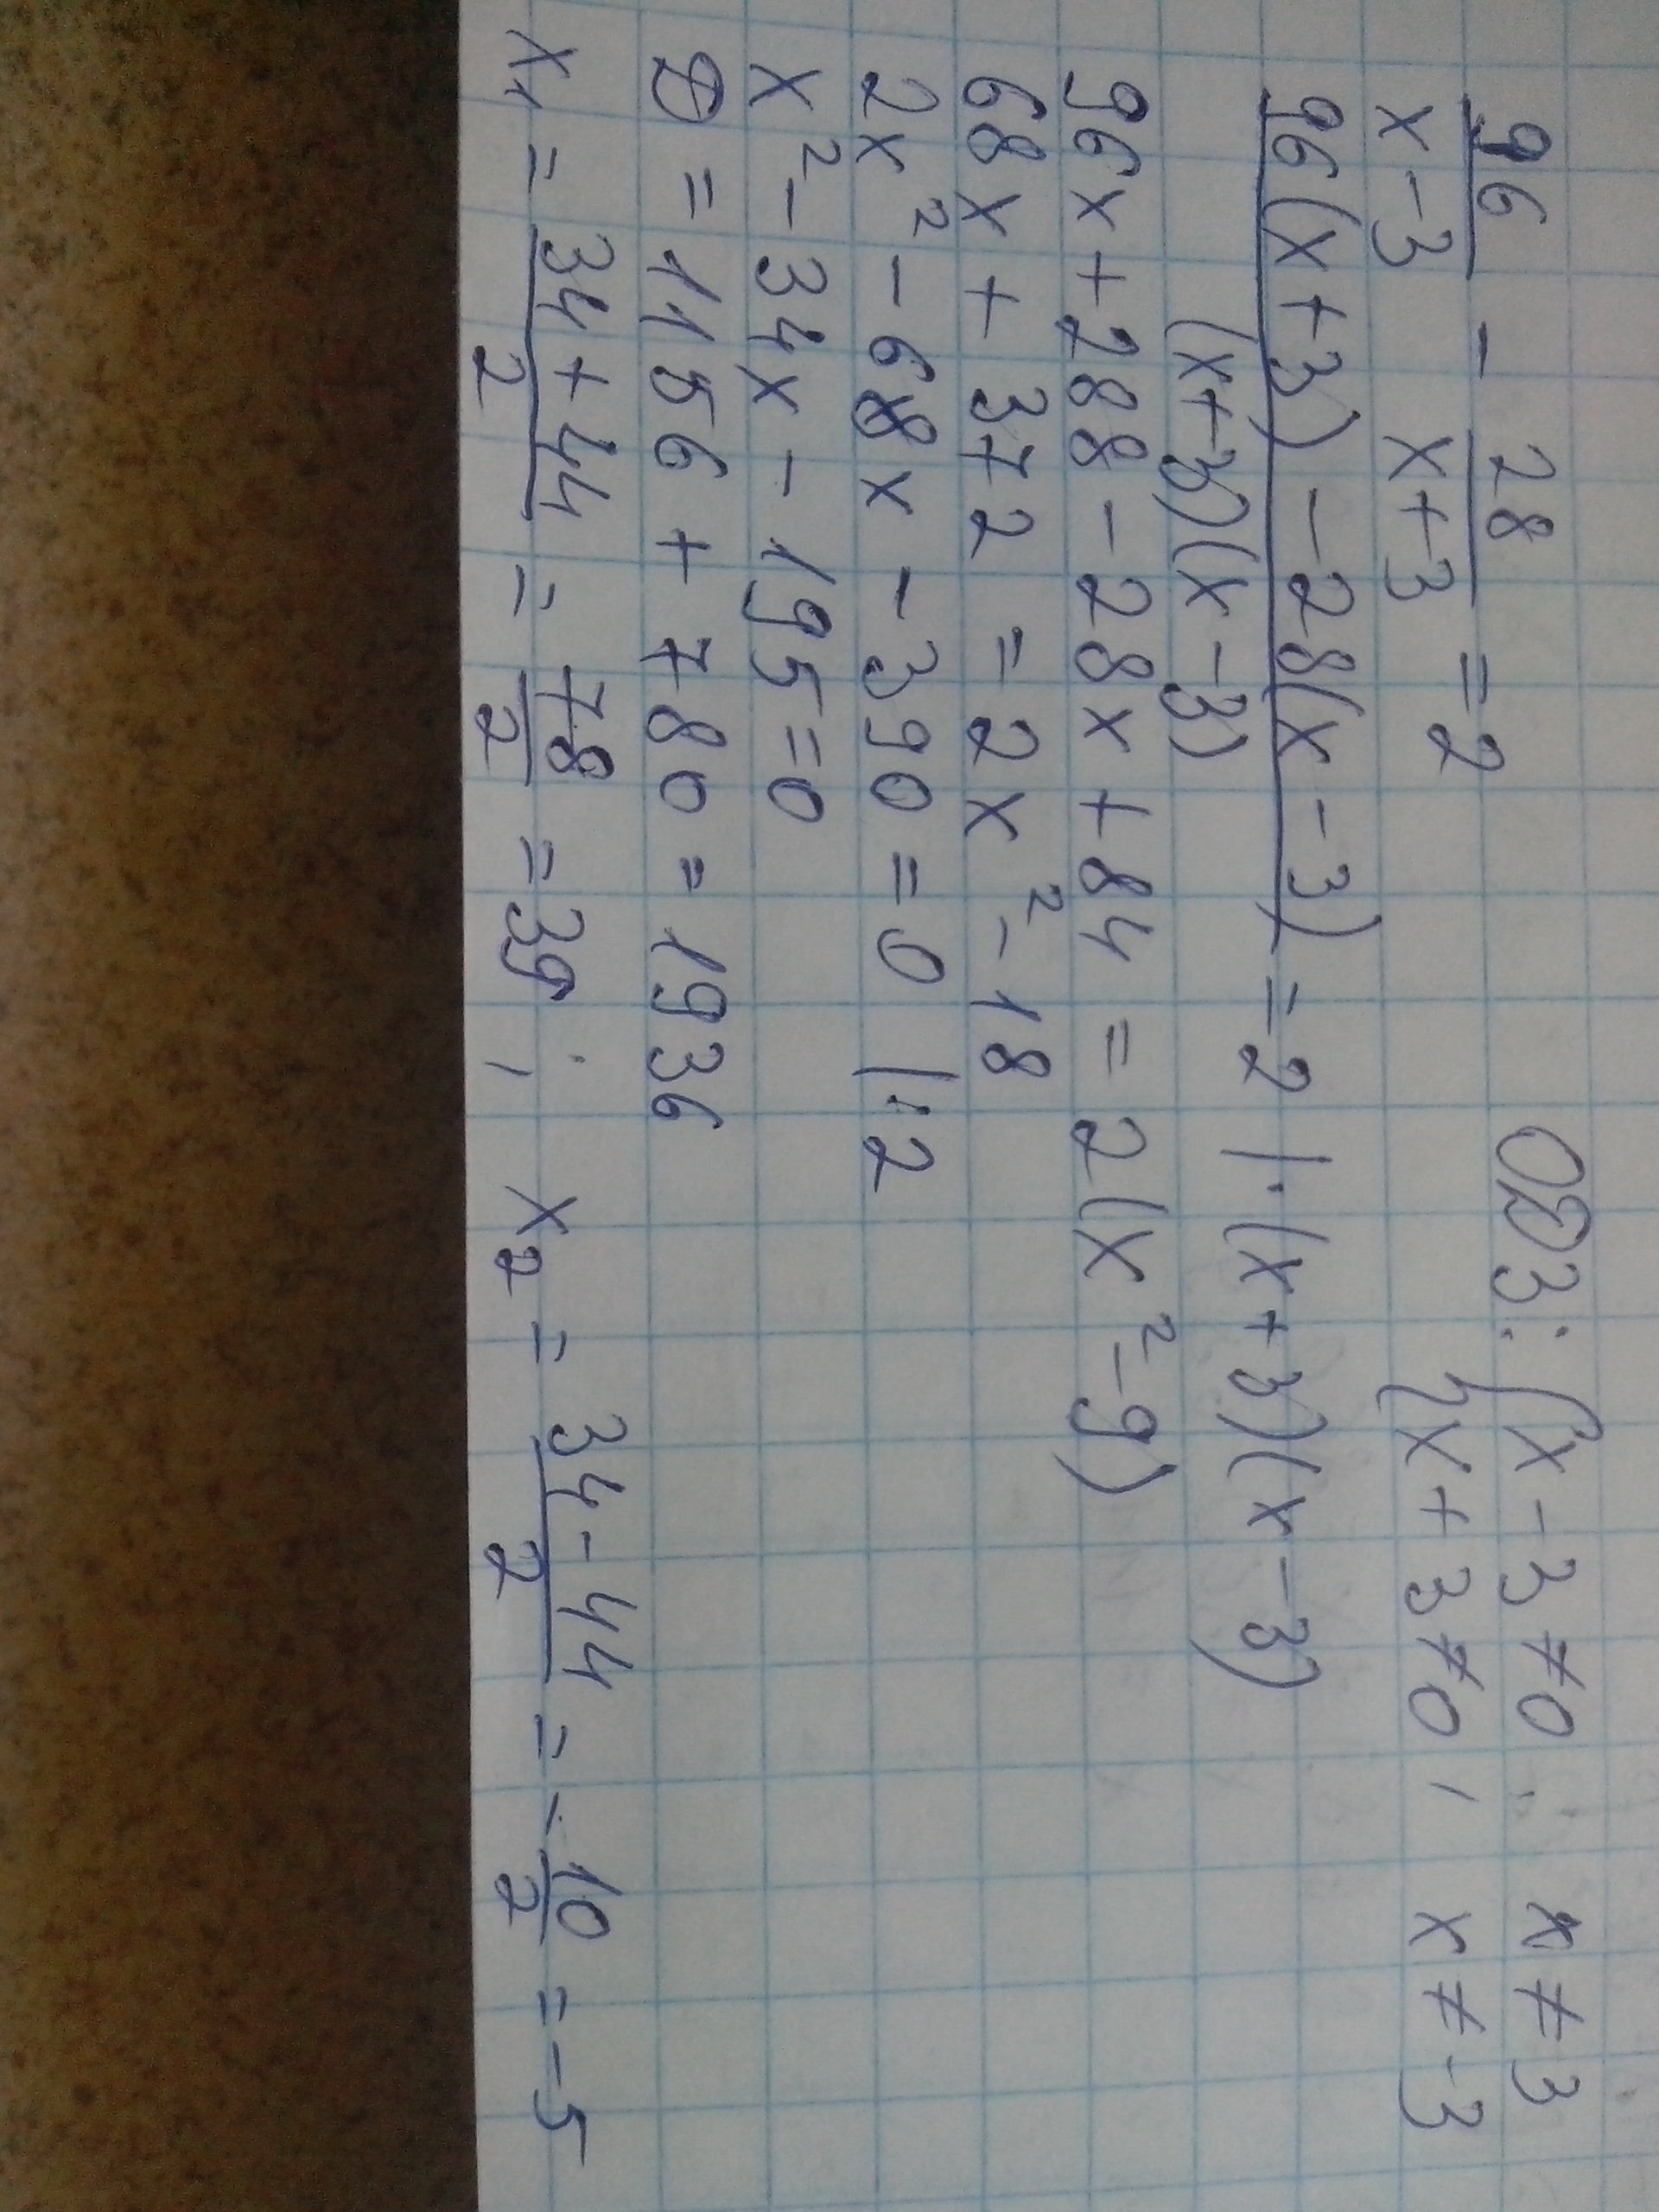 96/(x-3) - 28/(x+3) = 2 ОДЗ: { x-3≠0 ; x≠3
{ x+3≠0 ; x≠-3
(96(x+3) - 28(x-3))/((x+3)(x-3)) = 2 | · (x+3)(x-3)
96x + 288 - 28x + 84 = 2(x² - 9)
68x + 372 = 2x² - 18
2x² - 68x - 390 = 0 | : 2
x² - 34x - 195 = 0
D = 1156 + 780 = 1936
x₁ = (34+44)/2 = 78/2 = 39 ; x₂ = (34-44)/2 = -10/2 = -5